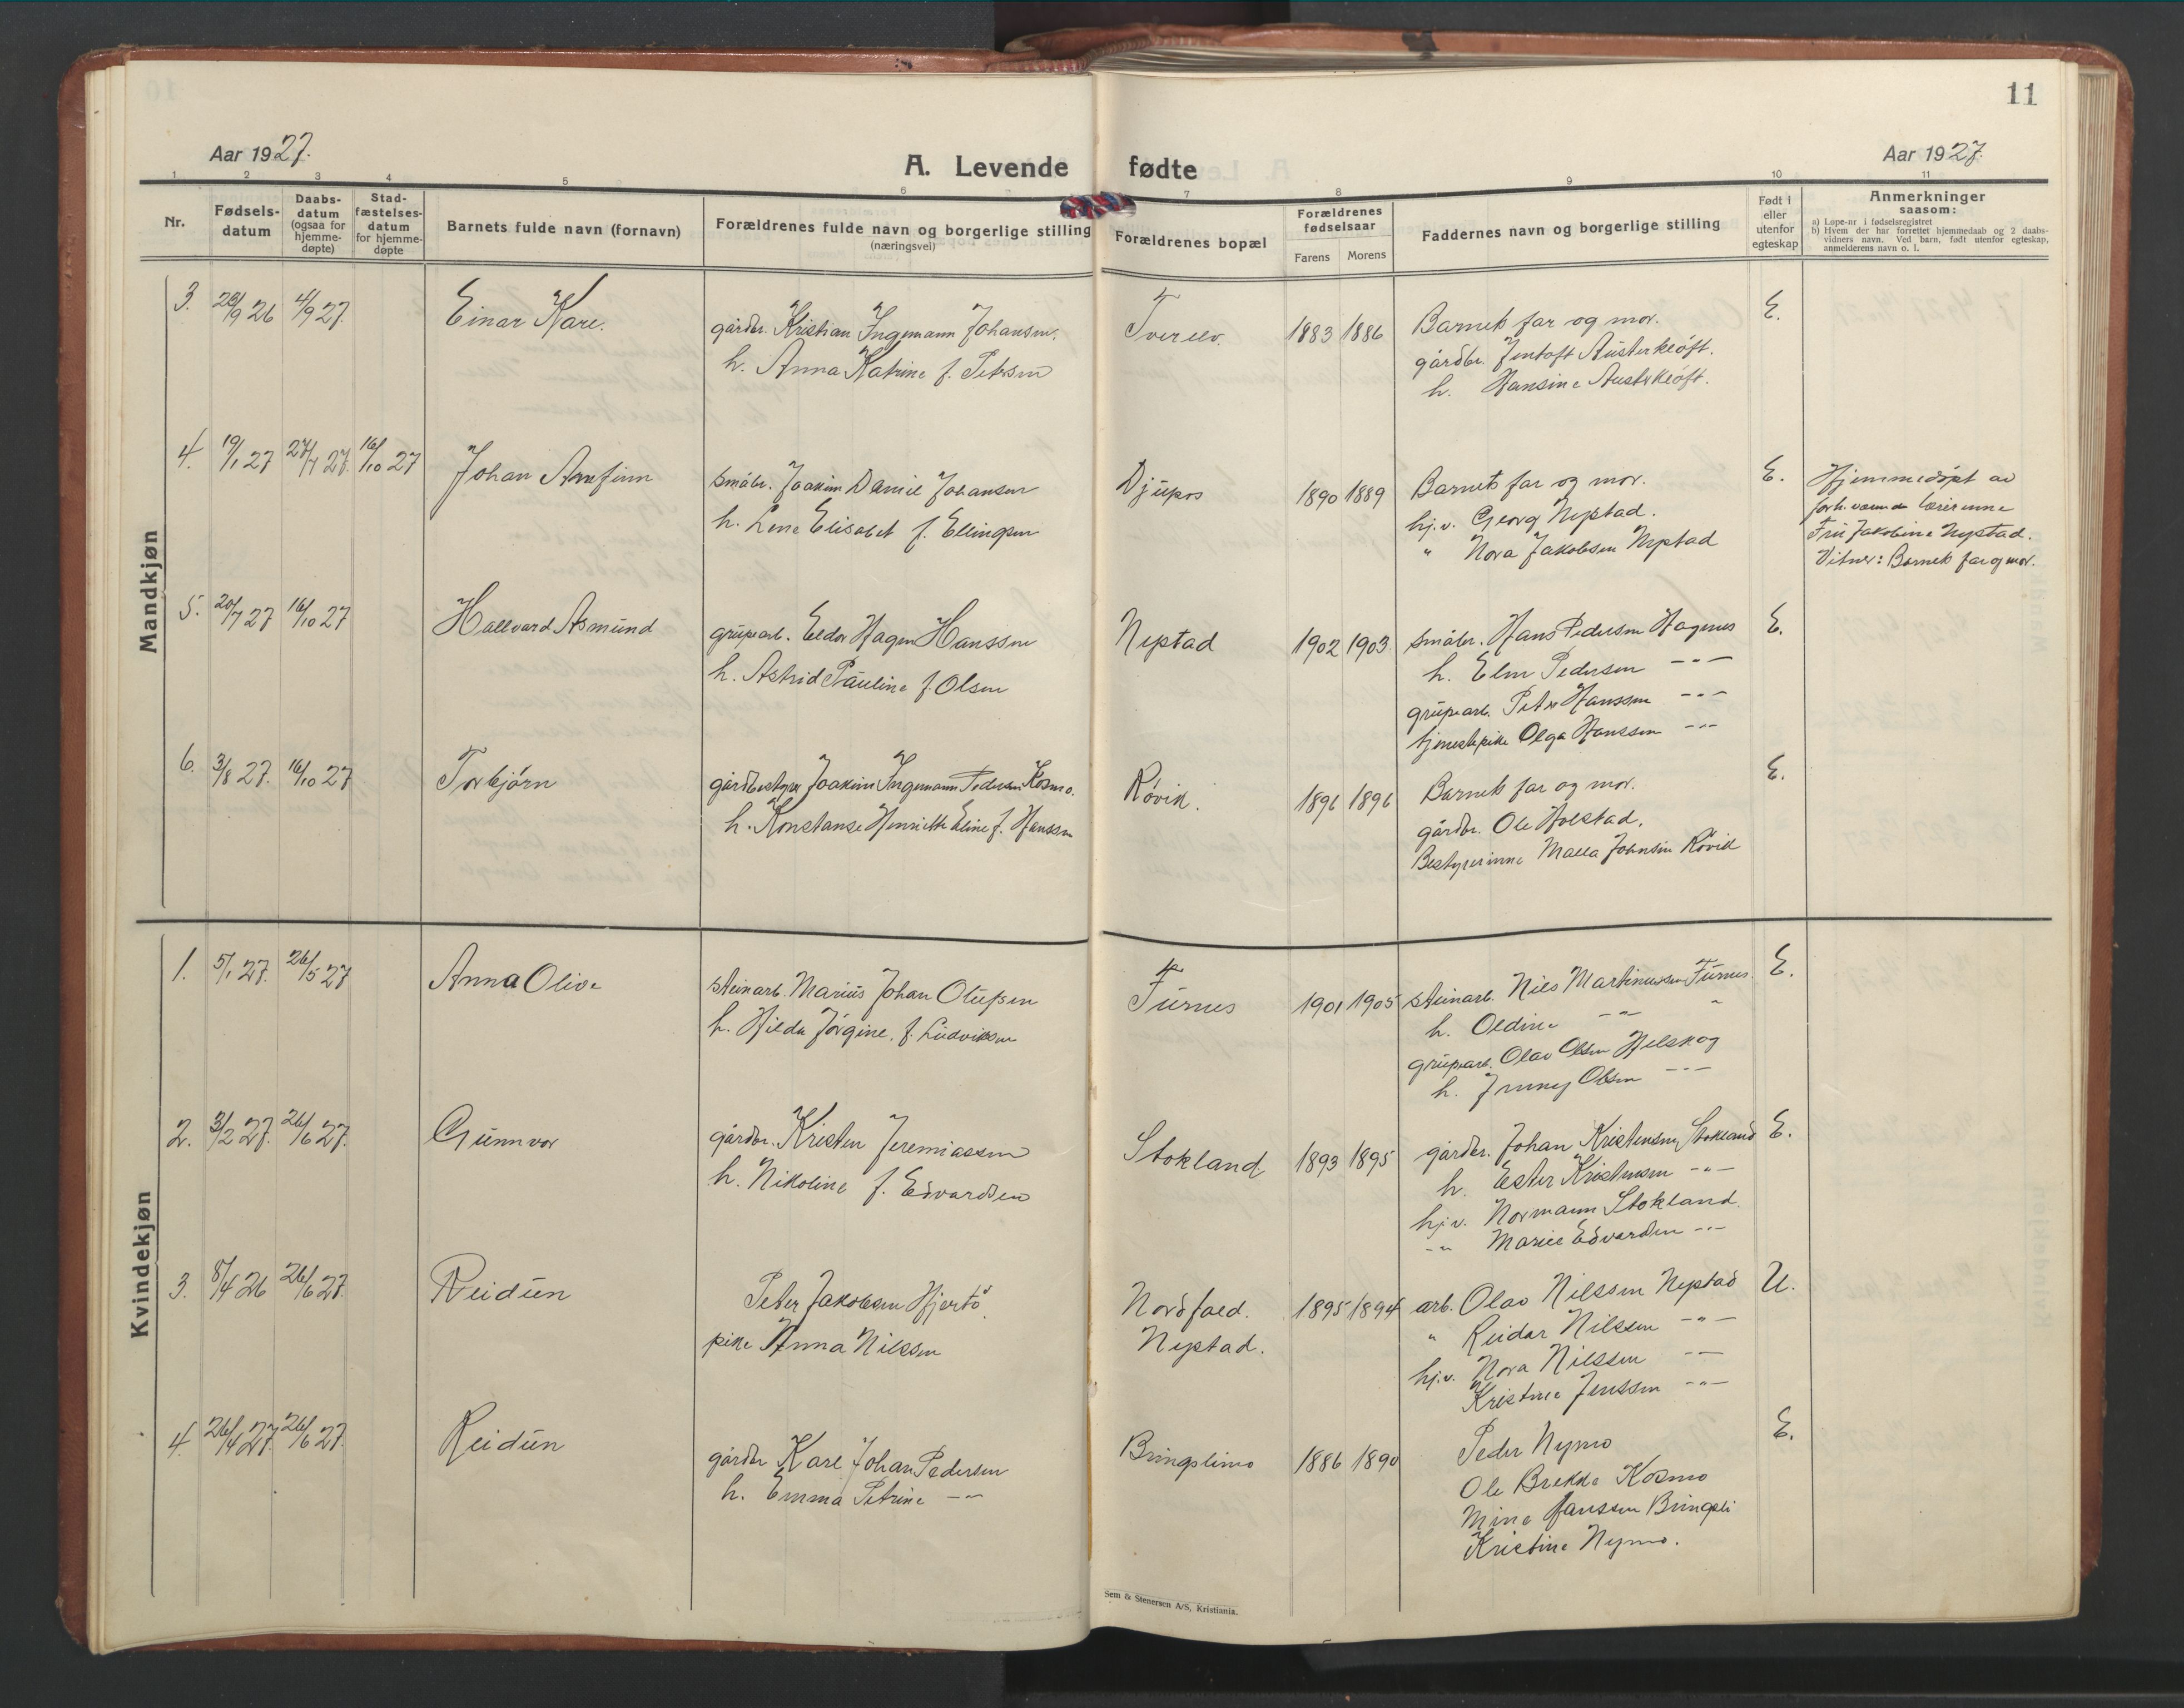 11
Aar 1927.
A. Levende fødte
Aar 1927.
1 2 3 4 5 6 7 8 9 10 11
Nr.
Fødsels-
datum
Daabs-
datum
(ogsaa for
hjemme-
døpte)
Stad-
fæstelses-
datum
for hjemme-
døpte
Barnets fulde navn (fornavn)
Forældrenes fulde navn og borgerlige stilling
(næringsvei)
Forældrenes bopæl
Forældrenes
fødselsaar
Farens Morens
Faddernes navn og borgerlige stilling
Født i
eller
utenfor
egteskap
Anmerkninger
saasom:
a) Løpe-nr i fødselsregistret
b) Hvem der har forrettet hjemmedaab og 2 daabs-
vidners navn. Ved barn, født utenfor egteskap,
anmelderens navn o. l.
Mandkjøn
3. 28/9 26 4/9 27. Einar Kare.
gårdbr. Kristian Ingemann Johansen.
h. Anna Katrine f. Petersen
Tverelv. 1883 1886
Barnets far og mor.
gårdbr. Jentoft Austerkløft.
h. Hansine Austerkløft.
E.
4. 19/1 27 27/4 27. 16/10 27 Johan Arnfinn
småbr. Joakim Daniel Johansen
h. Lene Elisabet f. Ellingsen
Djupos 1890 1889
Barnets far og mor.
hj.v. Georg Nystad.
" Nora Jakobsen Nystad
E.
Hjemmedøpt av
forh. værende lærerinne
Fru Jakobine Nystad.
Vitner: Barnets far og mor.
5. 20/7 27 16/10 27 Hallvard Asmund
grubearb. Eldor Hagen Hanssen
h. Astrid Pauline f. Olsen
Nystad 1902 1903
småbr. Hans Pedersen Hagenes
h. Elen Pedersen -"-
grubearb. Peter Hanssen -"-
tjenestepike Olga Hanssen -"-
E.
6. 3/8 27. 16/10 27 Torbjørn
gårdbestyrer Joakim Ingemann Pedersen Kosmo.
h. Konstanse Henriette Eline f. Hanssen
Røvik. 1896 1896
Barnets far og mor.
gårdbr. Ole Holstad.
Bestyrerinne Malla Johnsen Røvik
E.
Kvindekjøn
1. 5/1 27. 26/5 27 Anna Olive
steinarb. Marius Johan Olufsen
h. Hilda Jørgine, f. Ludviksen
Furnes 1901 1905
steinarb. Nils Martinussen Furnes.
h. Oldine -"- "
grubearb. Olav Olsen Helskog
h. Jenny Olsen -"-
E.
2. 3/2 27. 26/6 27. Gunnvor
gårdbr. Kristen Jeremiassen
h. Nikoline f. Edvardsen
Stokland 1893 1895
gårdbr. Johan Kristensen Stokland
h. Ester Kristensen -"-
hj.v. Normann Stokland.
-"- Marie Edvardsen -"-
E.
3. 8/4 26 26/6 27. Reidun
Peter Jakobsen Hjertø.
pike Anna Nilssen
Nordfold.
Nystad.
1895 1894
arb. Olav Nilssen Nystad
" Reidar Nilssen -"-
hj.v. Nora Nilssen -"-
Kristine Jenssen -"-
U.
4. 26/4 27. 26/6 27. Reidun
gårdbr Karl Johan Pedersen
h. Emma Petrine -"-
Bringslimo 1886 1890
Peder Nymo
Ole Brekke Kosmo
Mine Janssen Bringsli
Kristine Nymo.
E.
Sem & Stenersen A/S, Kristiania.